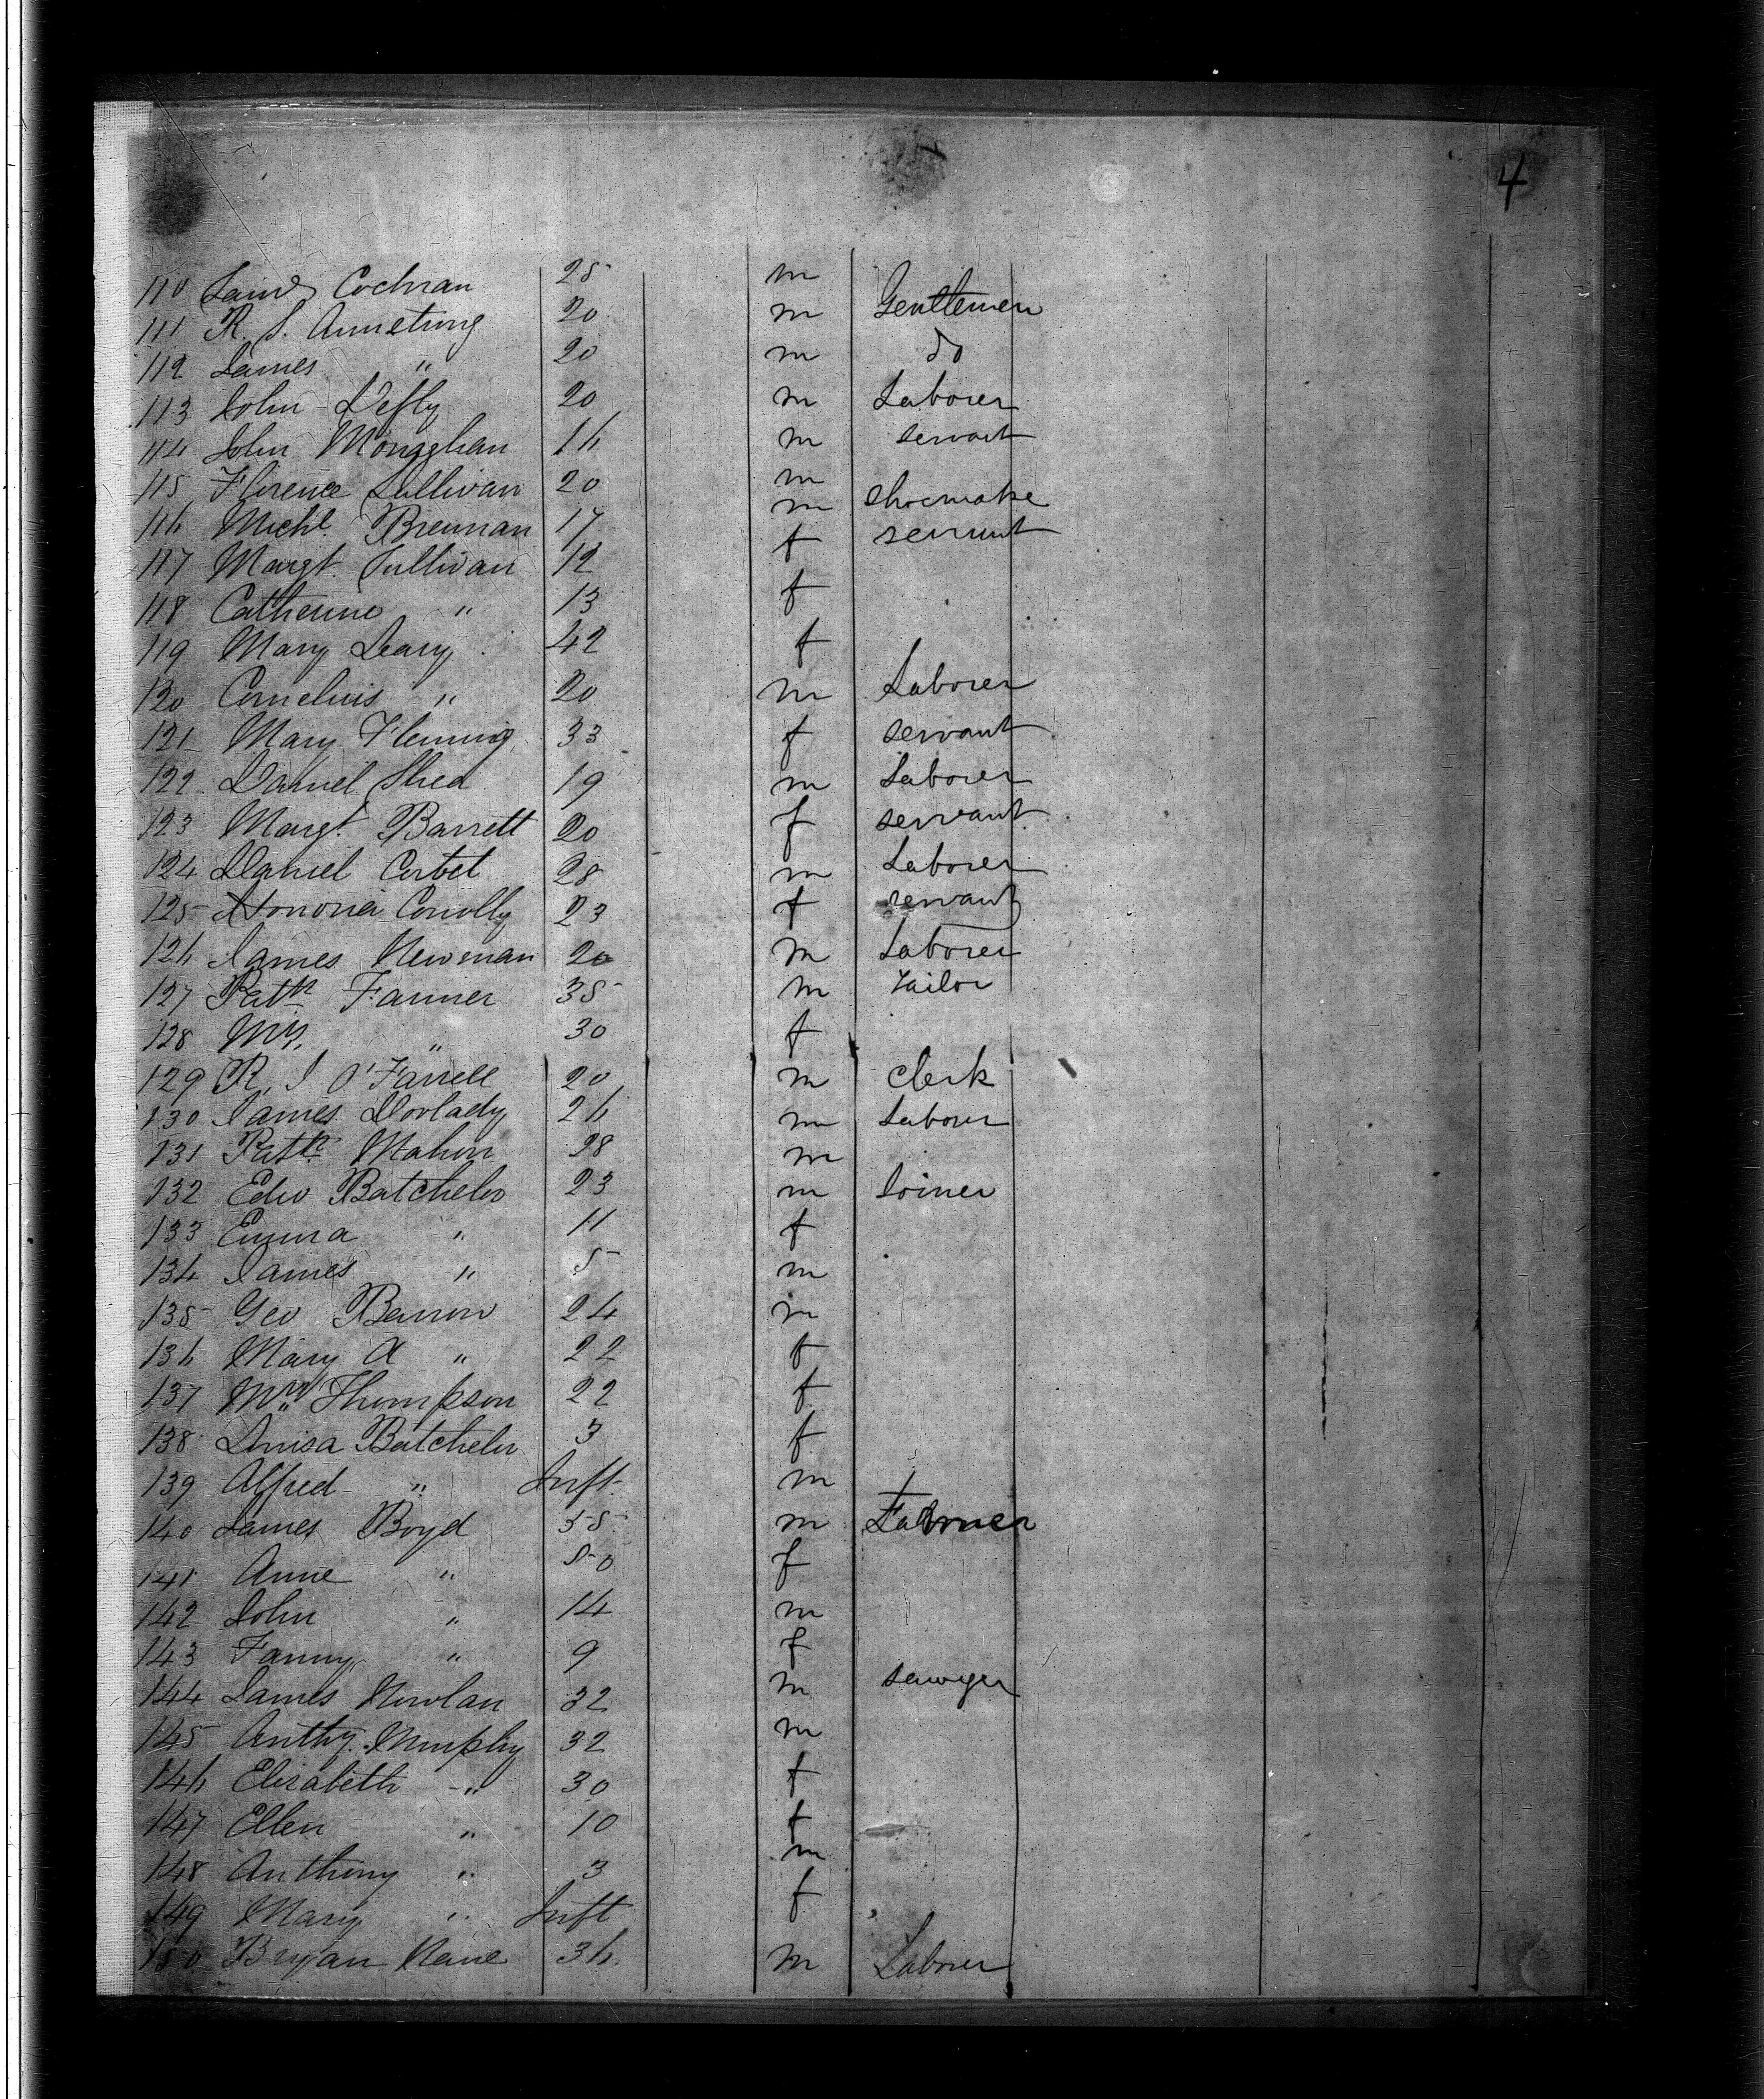 4
110 James Cochran 25 m
111 R. S. Armstrong 20 m Gentlemen
112 James " 20 m do
113 John Defly 20 m Laborer
114 John Monaghan 16 m servant
115 Florence Sullivan 20 m
116 Michl. Brennan 17 m shoemake
117 Margt. Sullivan 12 f servant
118 Catherine " 13 f
119 Mary Leary 42 f
120 Cornelius " 20 m Laborer
121 Mary Fleming 33 f servant
122 Daniel Shea 19 m Laborer
123 Margt. Barrett 20 f servant
124 Daniel Corbet 28 m Laborer
125 Honoria Conolly 23 f servant
126 James Newman 20 m Laborer
127 Patk Farmer 35 m Tailor
128 Mrs. " 30 f
129 R. J O'Farrell 20 m Clerk
130 James Doolady 26 m Laborer
131 Patk. Mahon 28 m
132 Edw Batchelor 23 m Joiner
133 Emma " 11 f
134 James " 5 m
135 Geo Barron 24 m
136 Mary A " 22 f
137 Mrs. Thompson 22 f
138 Louisa Batchelor 3 f
139 Alfred " Inft. m
140 James Boyd 55 m Farmer
141 Anne " 50 f
142 John " 14 m
143 Fanny " 9 f
144 James Nowlan 32 m sawyer
145 Anthy. Murphy 32 m
146 Elizabeth " 30 f
147 Ellen " 10 f
148 Anthony " 3 m
149 Mary " Inft f
150 Bryan Kane 36 m Laborer